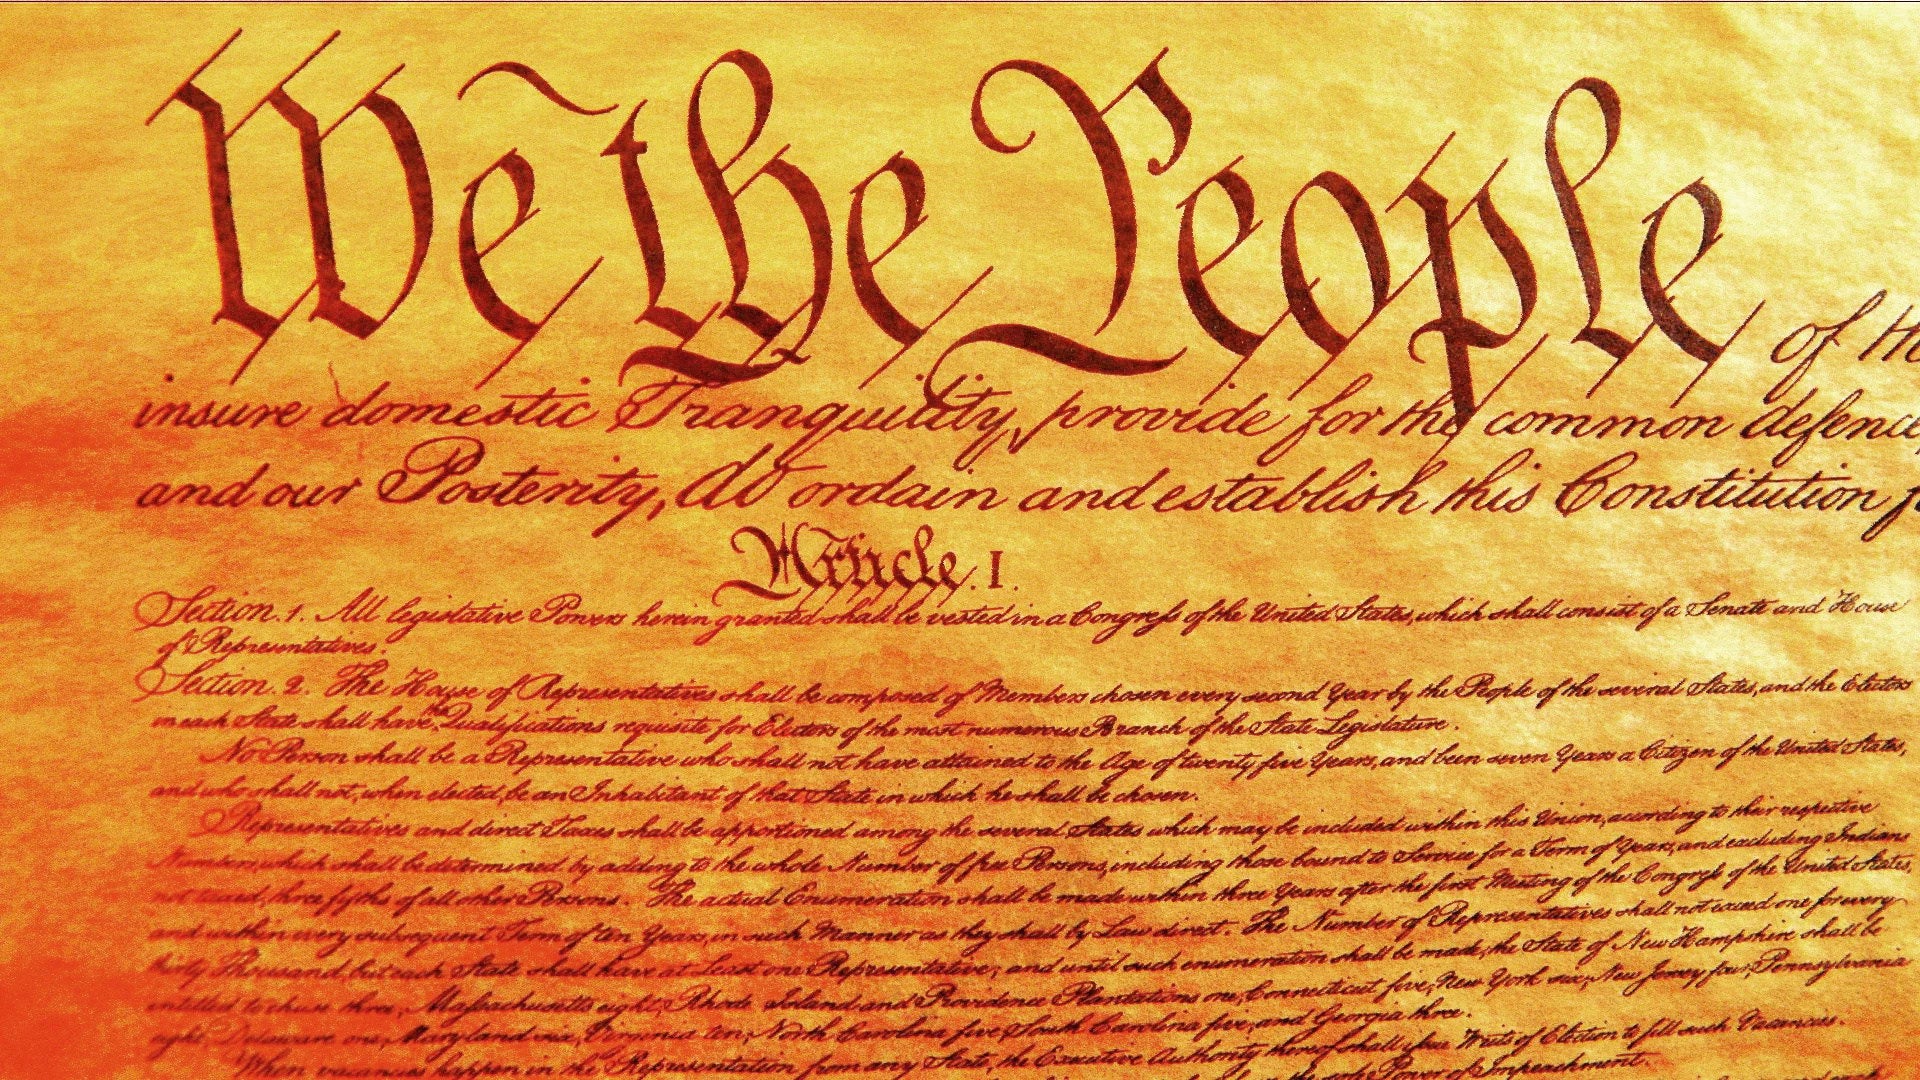 We the People of th
insure domestic Tranquility, provide for the common defence,
and our Posterity, do ordain and establish this Constitution f
Article. I.
Section. 1. All legislative Powers herein granted shall be vested in a Congress of the United States, which shall consist of a Senate and House
of Representatives.
Section. 2. The House of Representatives shall be composed of Members chosen every second Year by the People of the several States, and the Electors
in each State shall have the Qualifications requisite for Electors of the most numerous Branch of the State Legislature.
No Person shall be a Representative who shall not have attained to the Age of twenty five Years, and been seven Years a Citizen of the United States,
and who shall not, when elected, be an Inhabitant of that State in which he shall be chosen.
Representatives and direct Taxes shall be apportioned among the several States which may be included within this Union, according to their respective
Numbers, which shall be determined by adding to the whole Number of free Persons, including those bound to Service for a Term of Years, and excluding Indians
not taxed, three fifths of all other Persons. The actual Enumeration shall be made within three Years after the first Meeting of the Congress of the United States,
and within every subsequent Term of ten Years, in such Manner as they shall by Law direct. The Number of Representatives shall not exceed one for every
thirty Thousand, but each State shall have at Least one Representative; and until such enumeration shall be made, the State of New Hampshire shall be
entitled to chuse three, Massachusetts eight, Rhode Island and Providence Plantations one, Connecticut five, New York six, New Jersey four, Pennsylvania
eight, Delaware one, Maryland six, Virginia ten, North Carolina five, South Carolina five, and Georgia three.
When vacancies happen in the Representation from any State, the Executive Authority thereof shall issue Writs of Election to fill such Vacancies.
Power of Impeachment.